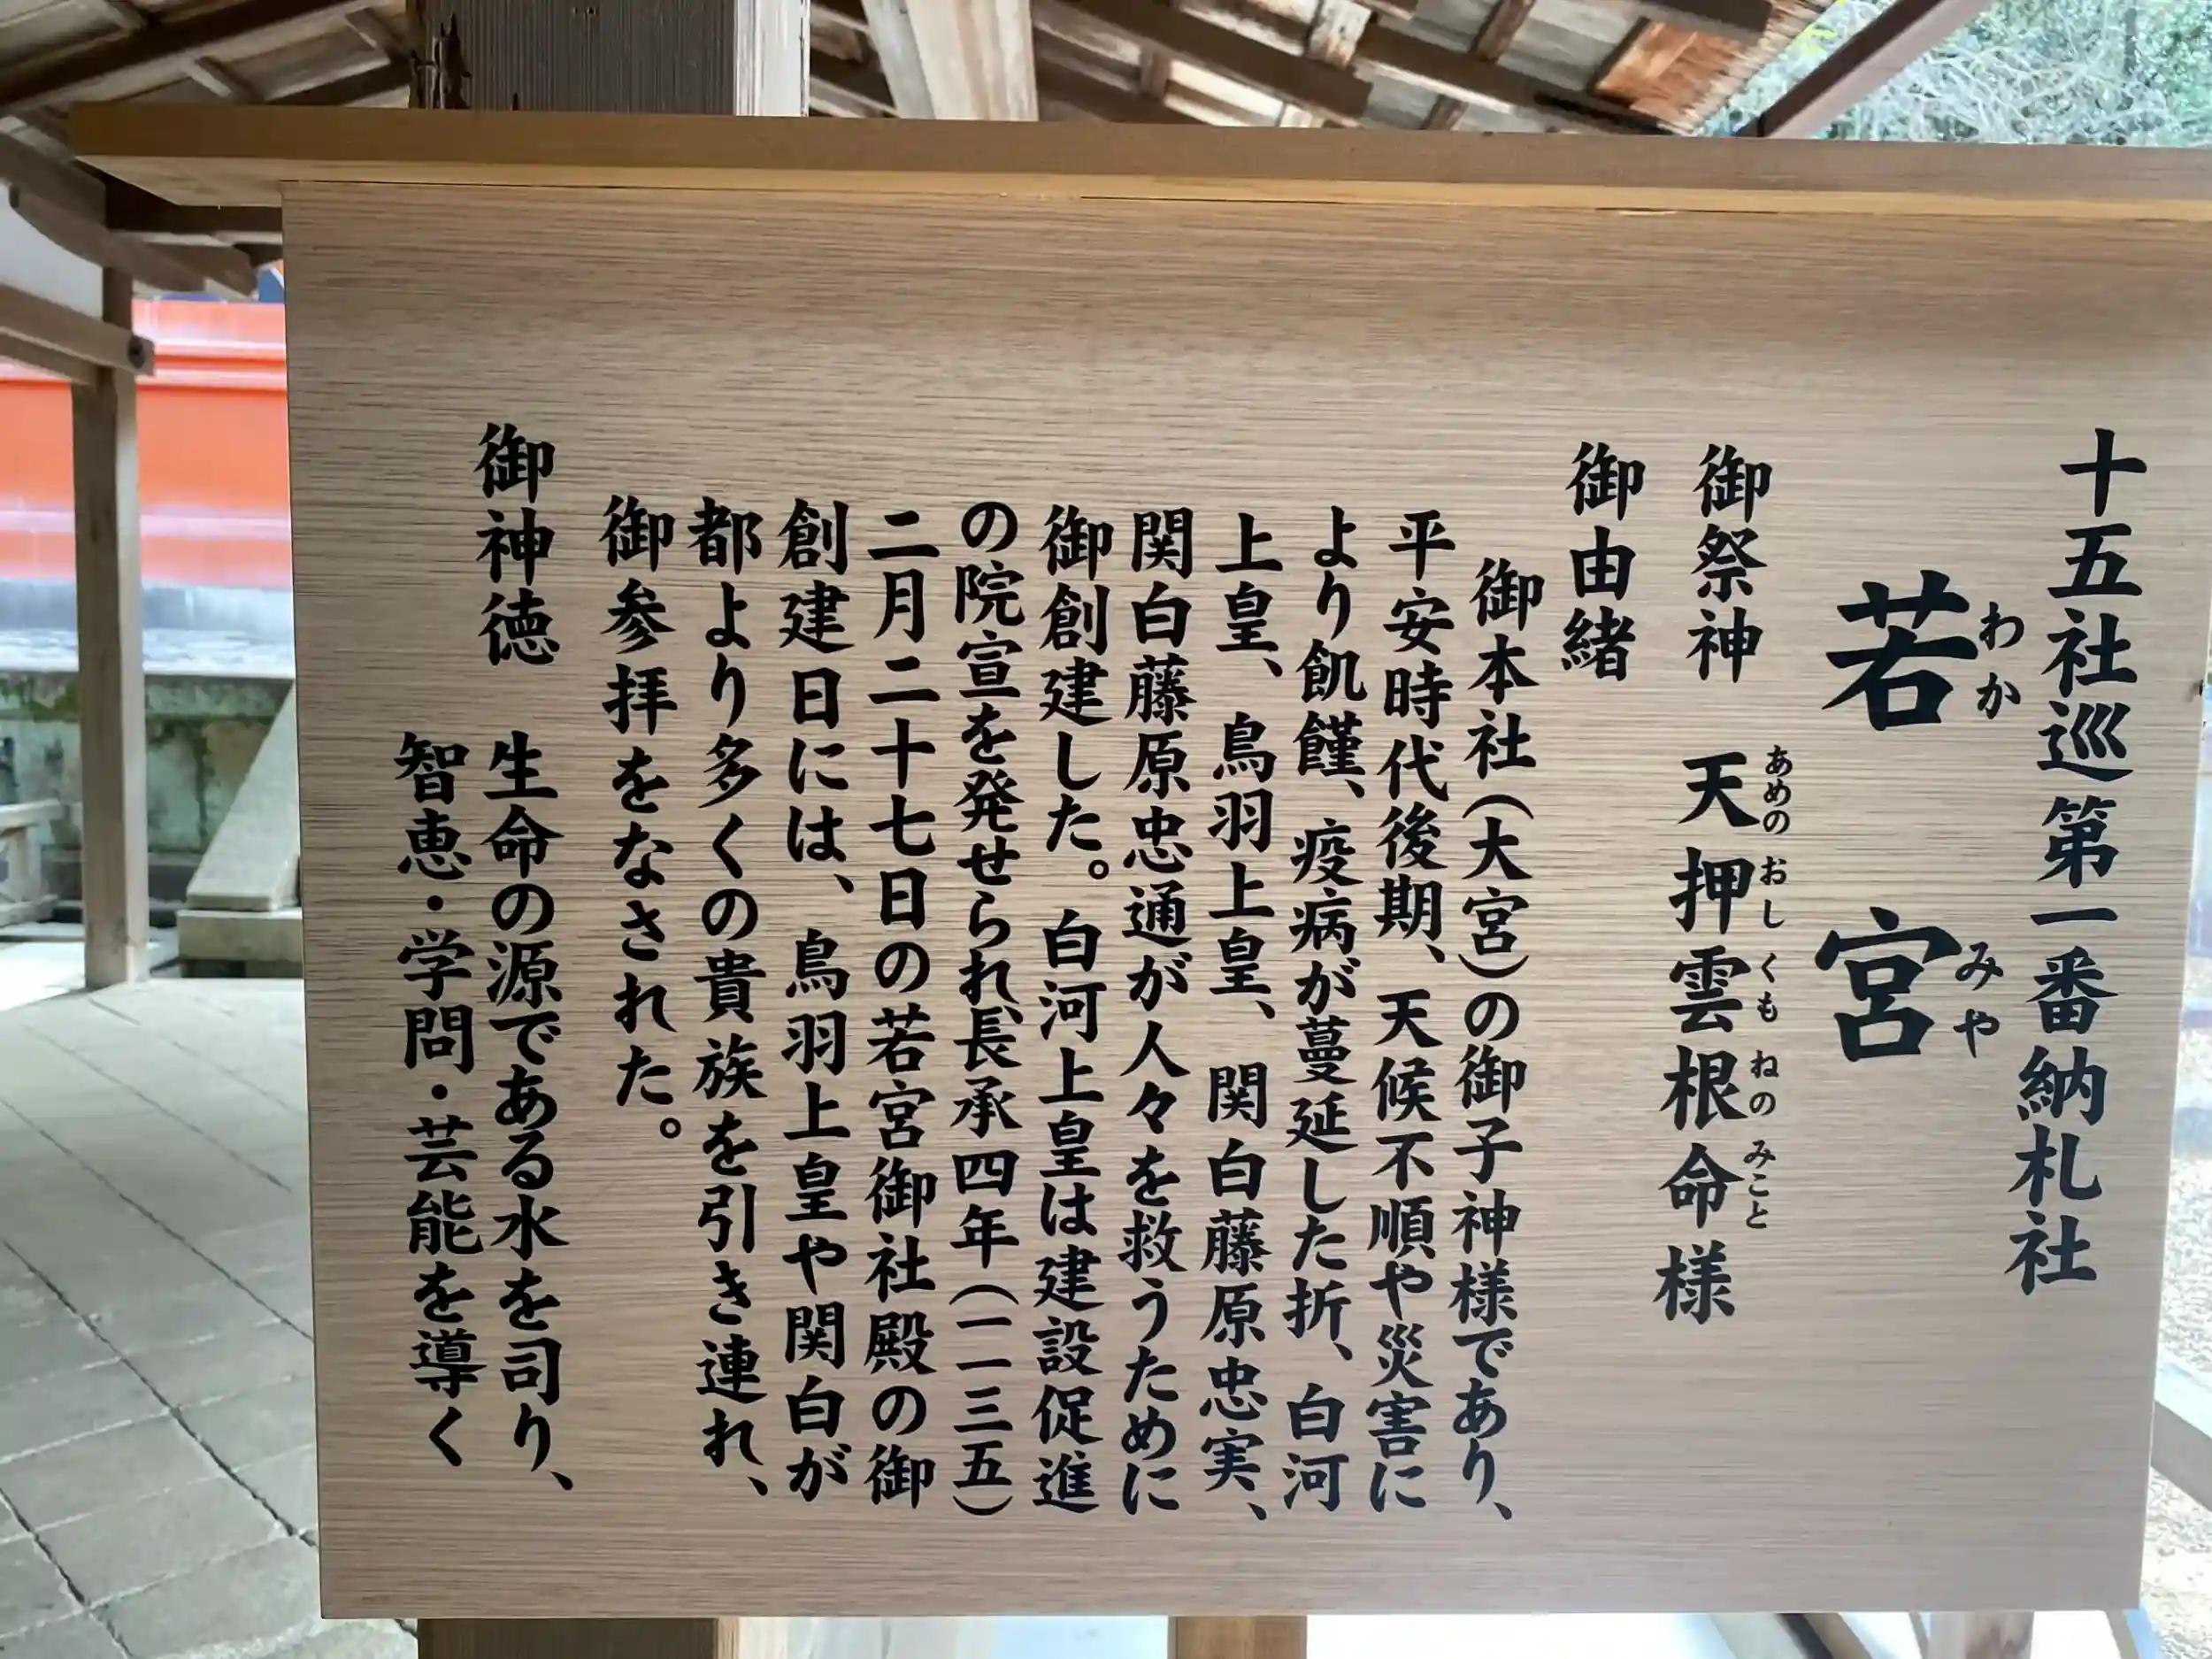 十五社巡第一番納札社
若宮
わかみや
御祭神 天押雲根命様
あめのおしくもねのみこと
御由緒
御本社(大宮)の御子神様であり、
平安時代後期、天候不順や災害に
より飢饉、疫病が蔓延した折、白河
上皇、鳥羽上皇、関白藤原忠実、
関白藤原忠通が人々を救うために
御創建した。白河上皇は建設促進
の院宣を発せられ、長承四年(一一三五)
二月二十七日の若宮御社殿の御
創建日には、鳥羽上皇や関白が
都より多くの貴族を引き連れ、
御参拝をなされた。
御神徳 生命の源である水を司り、
智恵・学問・芸能を導く